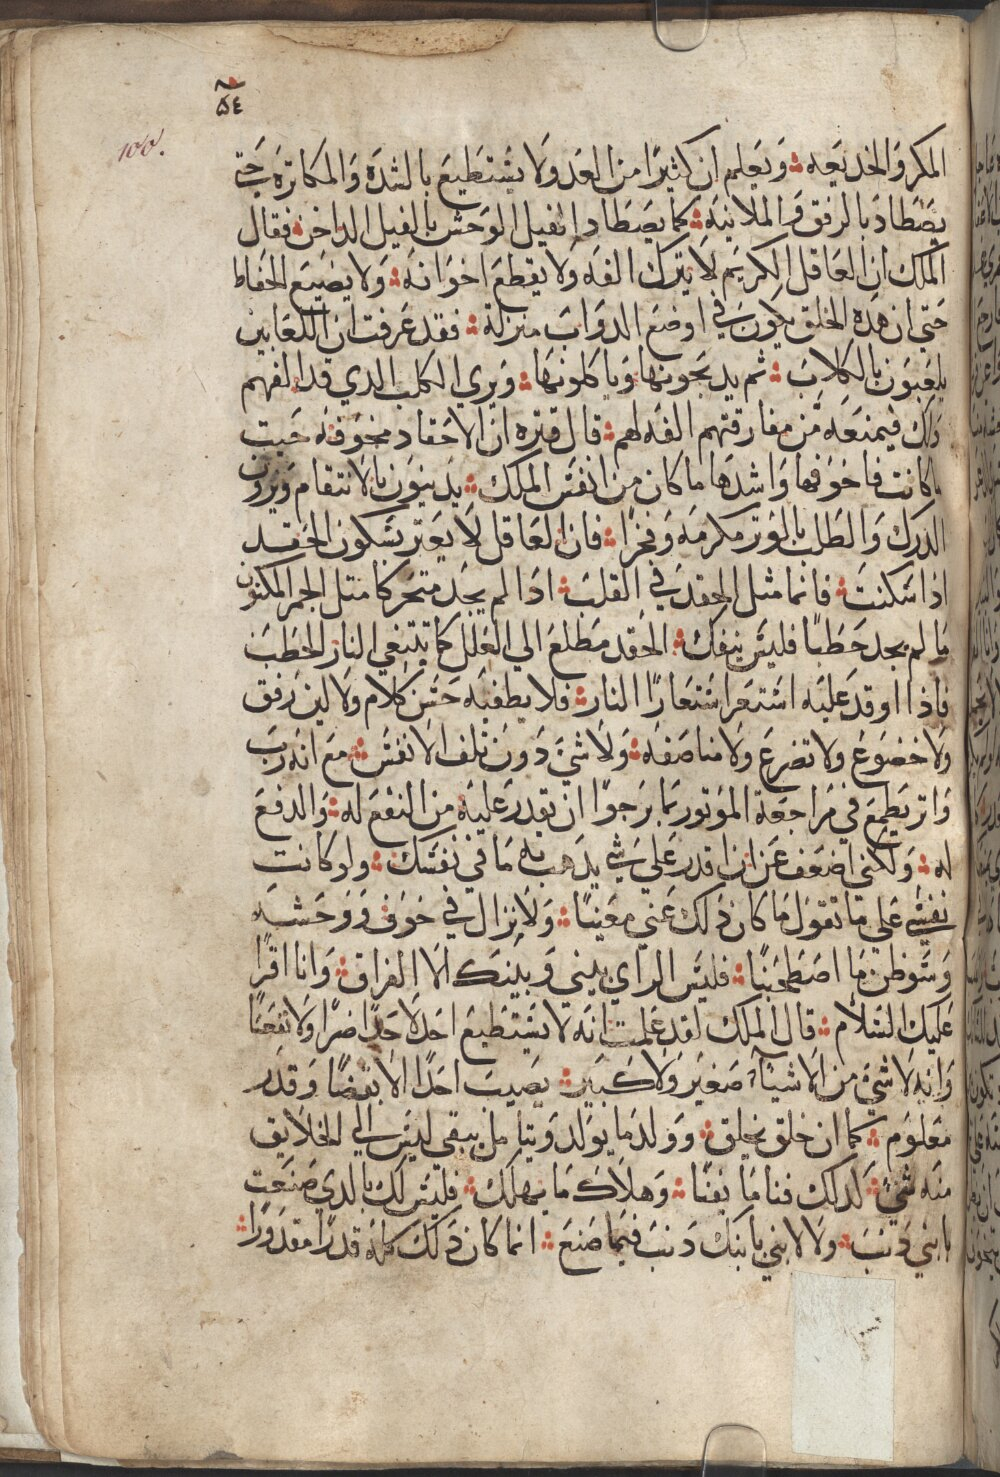 ٥٤
100.
المكر والخديعه ؞ ويعلم ان كثيرا من العدو لا يستطيع بالشده والمكاتره حتي
يصطاد بالرفق والملاينه ؞ كما يصطاد الفيل الوحش بالفيل الداخن ؞ فقال
الملك ان العاقل الكريم لا يترك الفه ولا يقطع اخوانه ؞ ولا يضيع الحفاظ
حتي ان هذه الخلق يكون في اوضع الدواب منزلة ؞ فقد عرفت ان اللعابين
يلعبون بالكلاب ؞ ثم يدبحونها وياكلونها ؞ ويري الكلب الدي قد الفهم
دلك فيمنعه من مفارقتهم الفه لهم ؞ قال قنزه ان الاحقاد مخوفه حيت
ما كانت فاخوفها واشدها ما كان من انفس الملك ؞ يدينون بالانتقام ويرون
الدرك والطلب بالوتر مكرمه وفخرا ؞ فان العاقل لا يغتر بسكون الحقد
اذا سكنت ؞ فانما مثل الحقد في القلب ؞ ادا لم يجد متحركا متل الجمر المكنون
ما لم يجد حطبا فليس ينفك ؞ الحقد مطلع الي العلل كما تبتغي النار الحطب
فاذا اوقد عليه استعر استعارا النار ؞ فلا يطفيه حسن كلام ولا لين رفق
ولا خضوع ولا تضرع ولا مناصفه ؞ ولا شي دون تلف الانفس ؞ مع انه رب
واتر يطمع في مراجعة الموتور بما يرجوا ان يقدر عليه من النفع له ؞ والدفع
له ؞ ولكني اضعف عن ان اقدر علي شي يدهب به ما في نفسك ؞ ولو كانت
نفسي علي ما تقول ما كان دلك عني مغنيا ؞ ولا نزال في خوف ووحشه
وسوظن ما اصطحبنا ؞ فليس الراي بيني وبينك الا الفراق ؞ وانا اقرا
عليك السلام ؞ قال الملك لقد علمت انه لا يستطيع احد لاحد ضرا ولا نفعا
وانه لا شي من الاشيا صغير ولا كبير ؞ يصيب احدا الا بقضا وقدر
معلوم ؞ كما ان خلق يخلق ؞ وولد ما يولد وبقا من يبقي ليس الي الخلايق
منه شي ؞ لدلك فنا ما يفنا ؞ وهلاك ما يهلك ؞ فليس لك بالدي صنعت
بابني دنب ؞ ولا لابني بابنك دنب فيما صنع ؞ انما كان دلك كله قدرا مقدورا ؞